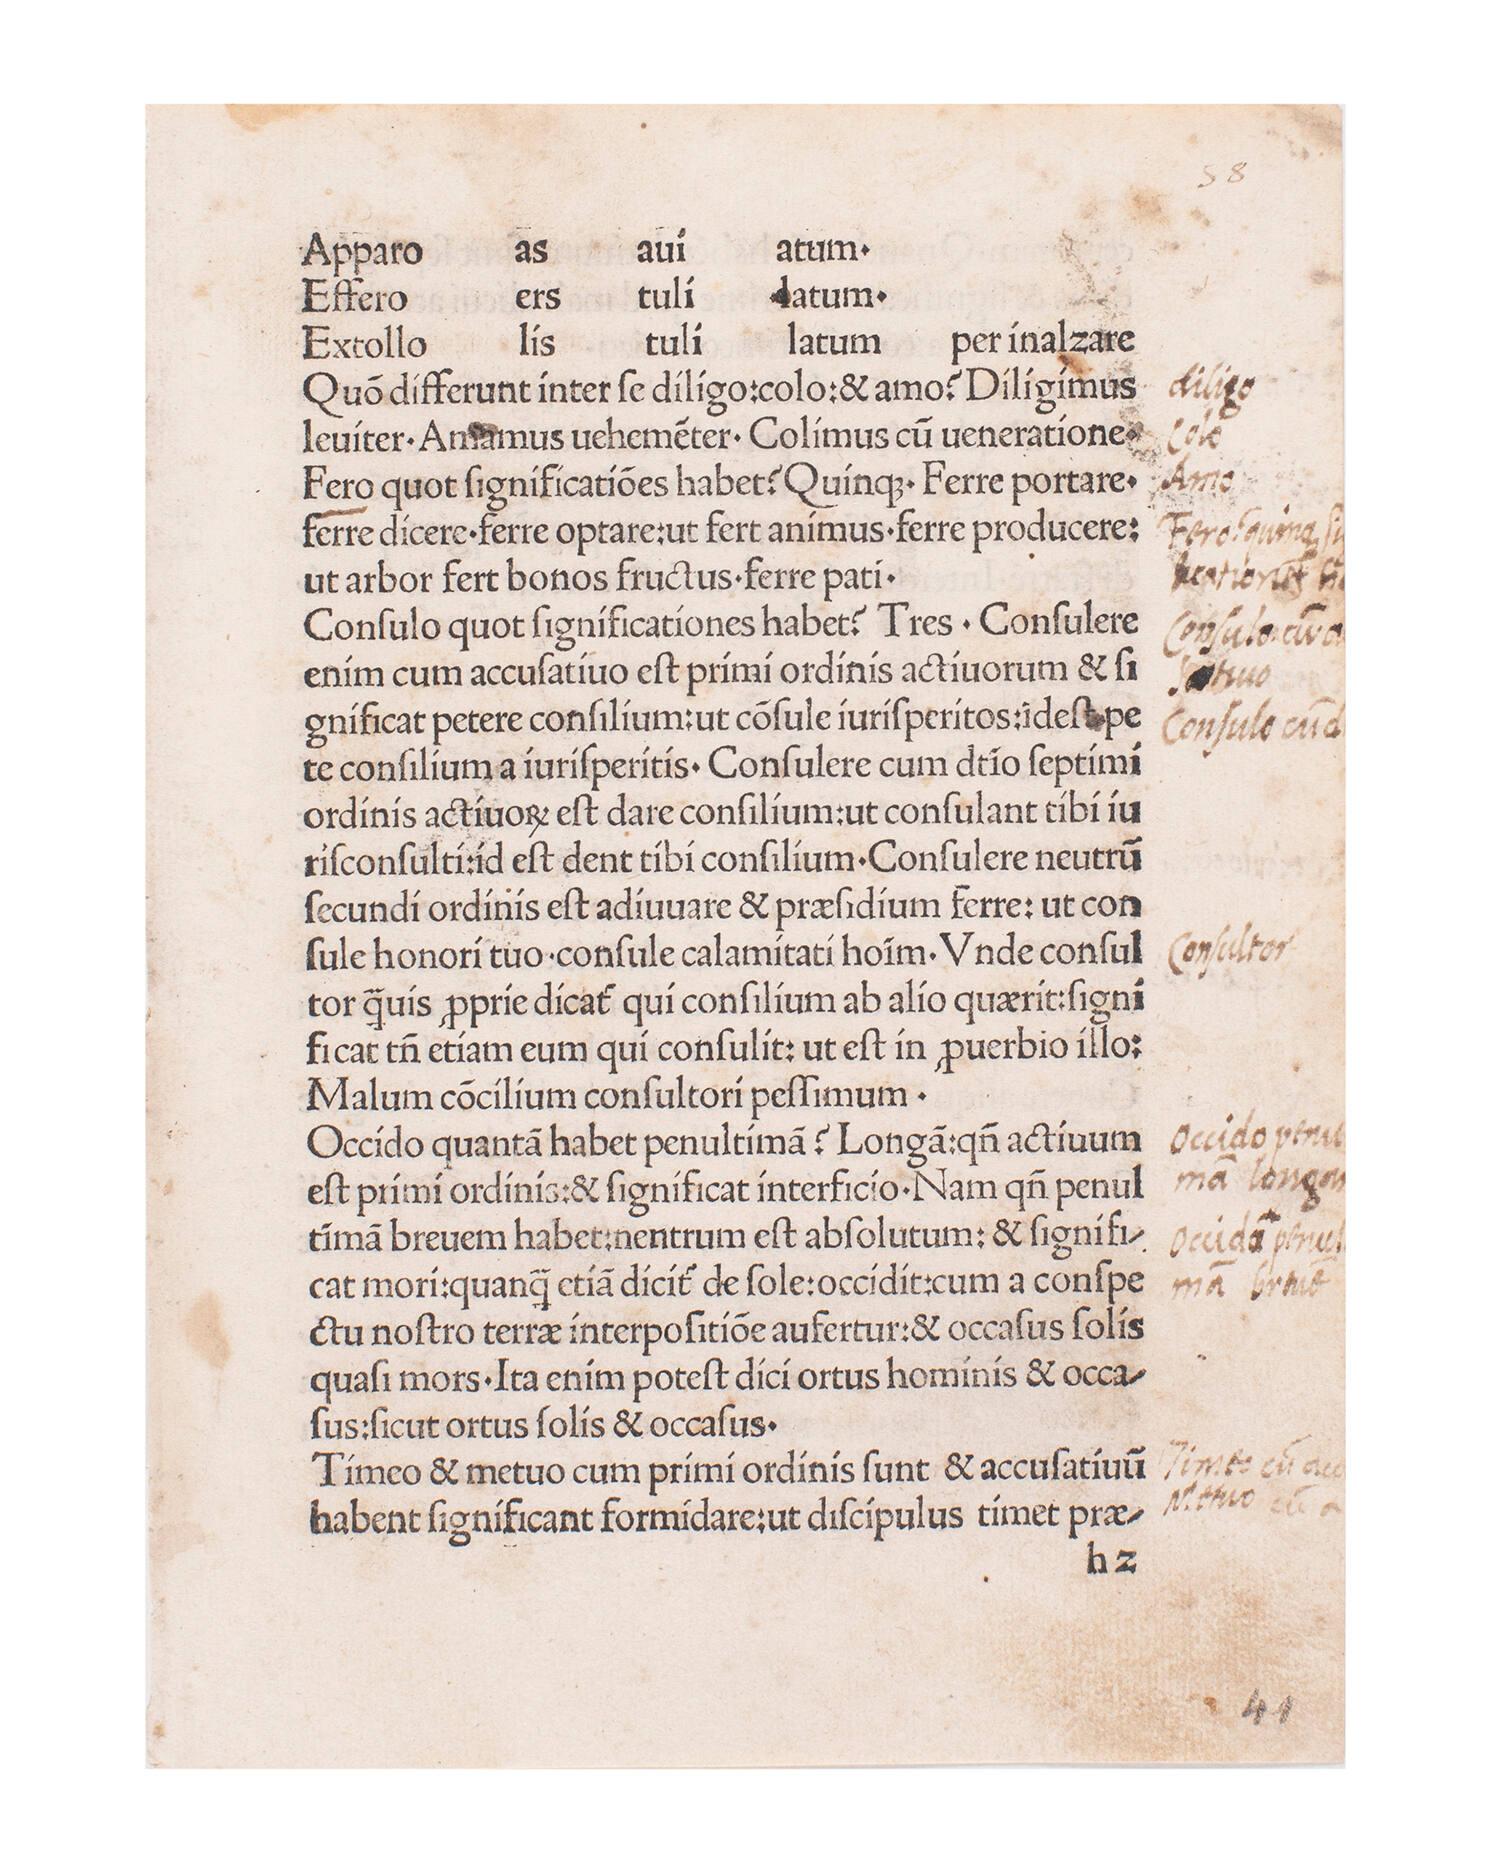 58
Apparo as aui atum·
Effero ers tuli latum·
Extollo lis tuli latum per inalzare
Quō differunt inter ſe diligo:colo:& amo? Diligimus
leuiter· Amamus uehemēter· Colimus cū ueneratione·
Fero quot ſignificatiōes habet? Quinqꝫ· Ferre portare·
ferre dicere·ferre optare:ut fert animus·ferre producere:
ut arbor fert bonos fructus·ferre pati·
Conſulo quot ſignificationes habet? Tres · Conſulere
enim cum accuſatiuo eſt primi ordinis actiuorum & ſi
gnificat petere conſilium:ut cōſule iuriſperitos:ideſt pe
te conſilium a iuriſperitis· Conſulere cum dtīo ſeptimi
ordinis actiuoꝝ eſt dare conſilium:ut conſulant tibi iu
riſconſulti:id eſt dent tibi conſilium·Conſulere neutrū
ſecundi ordinis eſt adiuuare & præſidium ferre: ut con
ſule honori tuo·conſule calamitati hoīm· Vnde conſul
tor q̄uis ꝓprie dicat᷑ qui conſilium ab alio quærit:ſigni
ficat tn̄ etiam eum qui conſulit: ut eſt in ꝓuerbio illo:
Malum cōcilium conſultori peſſimum ·
Occido quantā habet penultimā ? Longā:qn̄ actiuum
eſt primi ordinis:& ſignificat interficio·Nam qn̄ penul
timā breuem habet:nentrum eſt abſolutum: & ſignifi-
cat mori:quanq̄ etiā dicit᷑ de ſole:occidit:cum a conſpe
ctu noſtro terræ interpoſitiōe aufertur:& occaſus ſolis
quaſi mors·Ita enim poteſt dici ortus hominis & occa-
ſus:ſicut ortus ſolis & occaſus·
Timeo & metuo cum primi ordinis ſunt & accuſatiuū
habent ſignificant formidare:ut diſcipulus timet præ-
h2
diligo
Colo
Amo
Fero
Conſulo
Conſulo cū d
Conſultor
Occido penul
mā longam
Occidā penul
mā breuē
Timeo cū
Metuo cū a
41